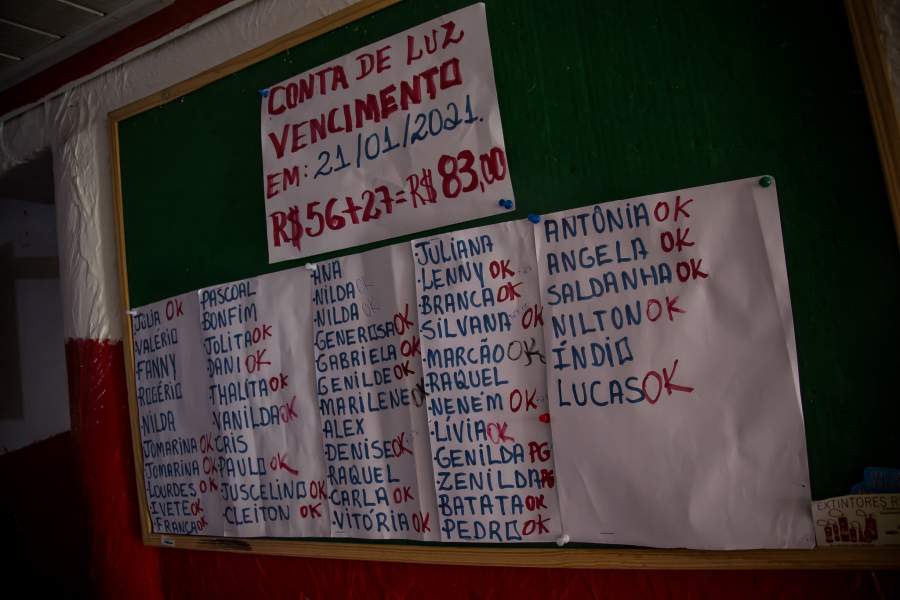 CONTA DE LUZ
VENCIMENTO
EM: 21/01/2021.
R$56+27=R$83,00
JULIA OK
VALÉRIO
FANNY
ROGÉRIO
NILDA
JOMARINA OK
JOMARINA OK
LOURDES OK
IVETE OK
FRANÇA OK
PASCOAL
BONFIM
JOLITA OK
DANI OK
THALITA OK
VANILDA OK
CRIS
PAULO OK
JUSCELINO OK
CLEITON OK
ANA
NILDA
NILDA OK
GENEROSA OK
GABRIELA OK
GENILDE OK
MARILENE OK
ALEX
DENISE OK
RAQUEL
CARLA OK
VITÓRIA OK
JULIANA
LENNY OK
BRANCA OK
SILVANA OK
MARCÃO OK
RAQUEL
NENÉM OK
LÍVIA OK
GENILDA PG
ZENILDA PG
BATATA OK
PEDRO OK
ANTÔNIA OK
ANGELA OK
SALDANHA OK
NILTON OK
ÍNDIO
LUCAS OK
EXTINTORES